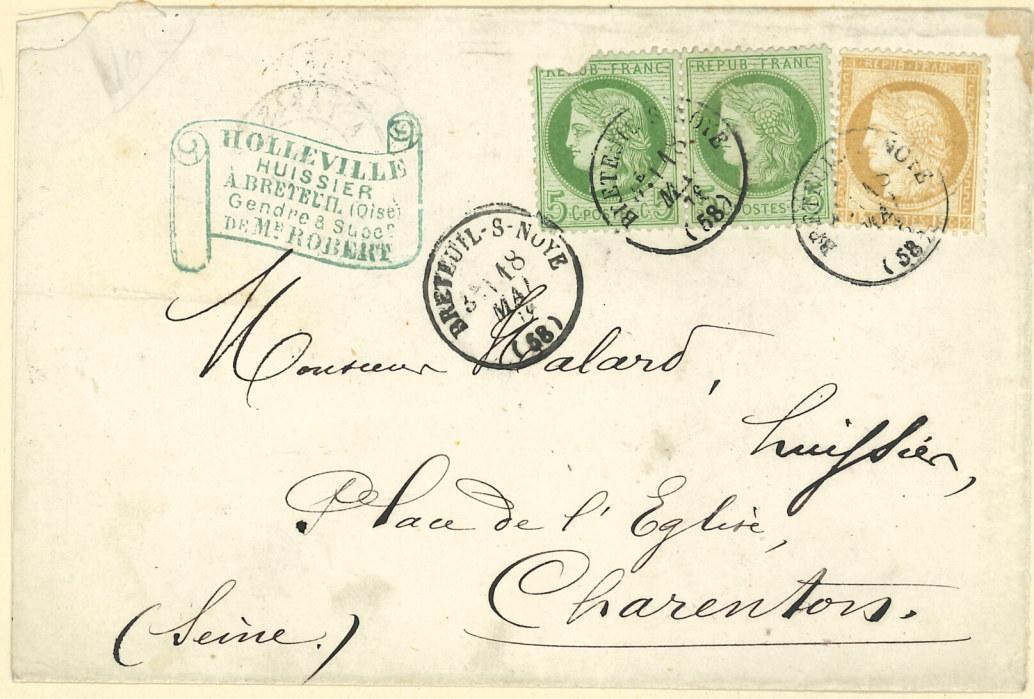 HOLLEVILLE
HUISSIER
A BRETEUIL (Oise)
Gendre & Succr
DE Me ROBERT
REPUB·FRANC
5 C. POSTES 5 C.
REPUB·FRANC
POSTES
REPUB·FRANC
BRETEUIL-S-NOYE
18
MAI
(58)
BRETEUIL-S-NOYE
18
MAI
(58)
NOYE
(58)
Monsieur Malard,
huissier,
Place de l'Eglise,
Charenton.
(Seine.)